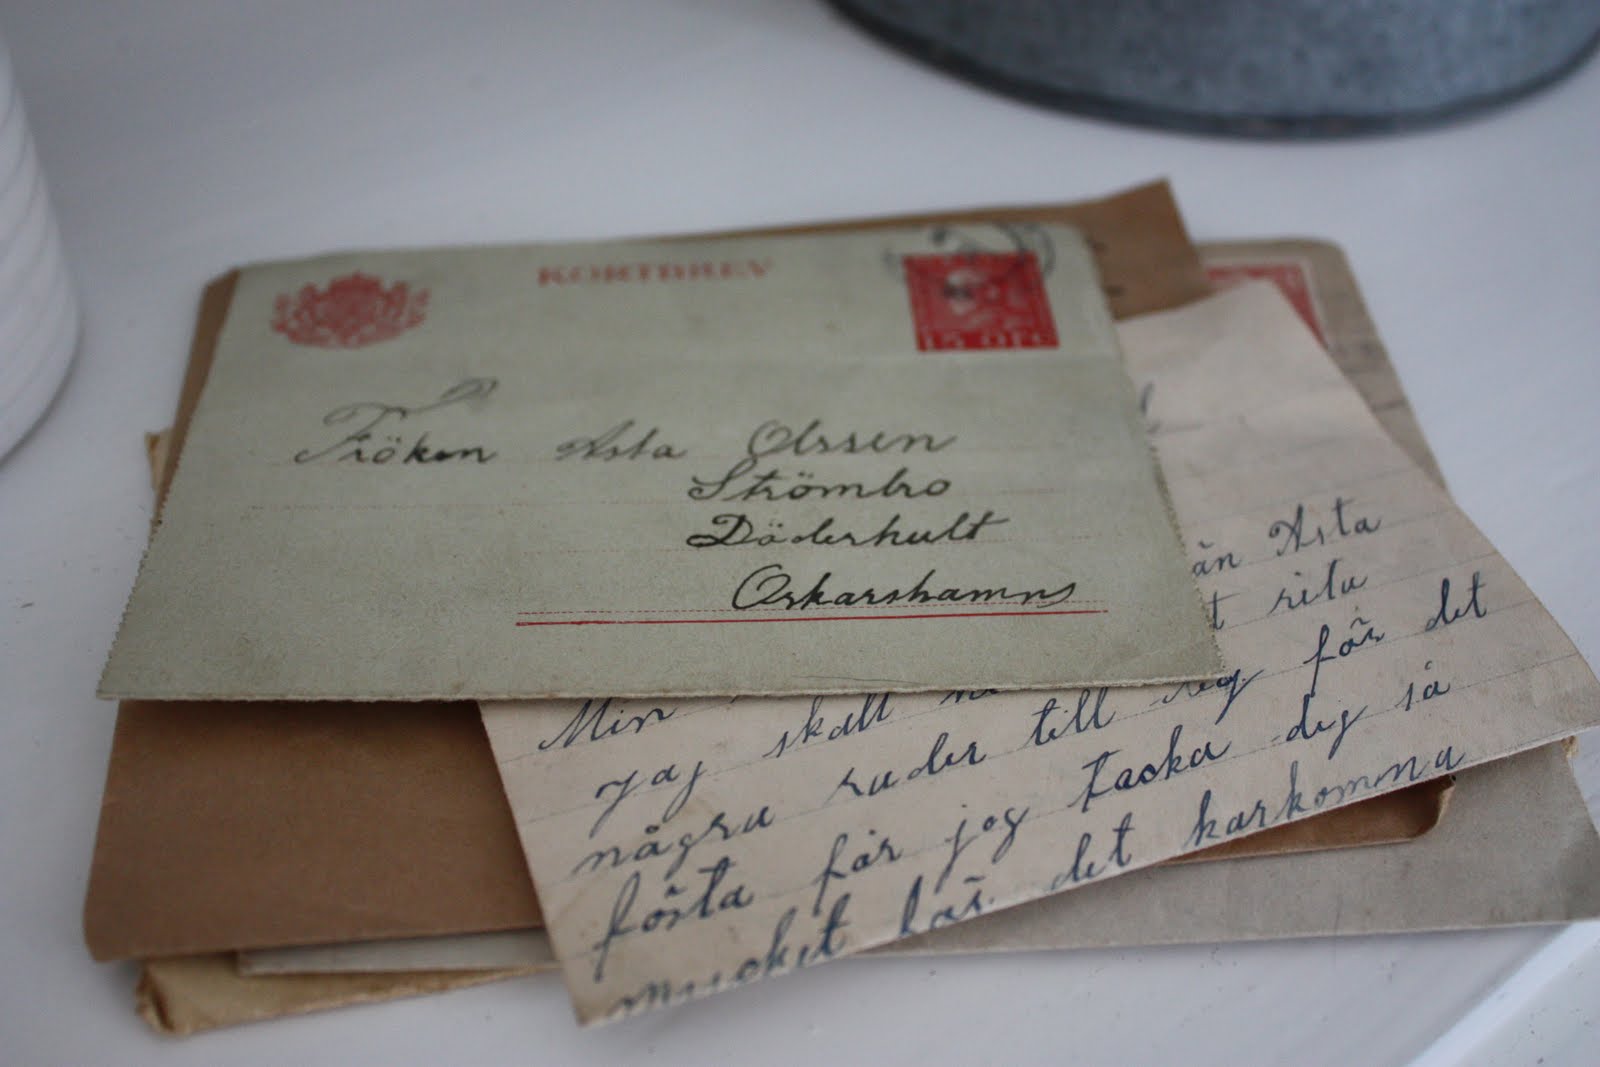 KORTBREV
15 ÖRE
Fröken Asta Olssen
Strömbro
Döderhult
Oskarshamns
än Asta
t rita
Min
jag skall
några rader till dig för det
första får jog tacka dig så
mycket för det karkomma